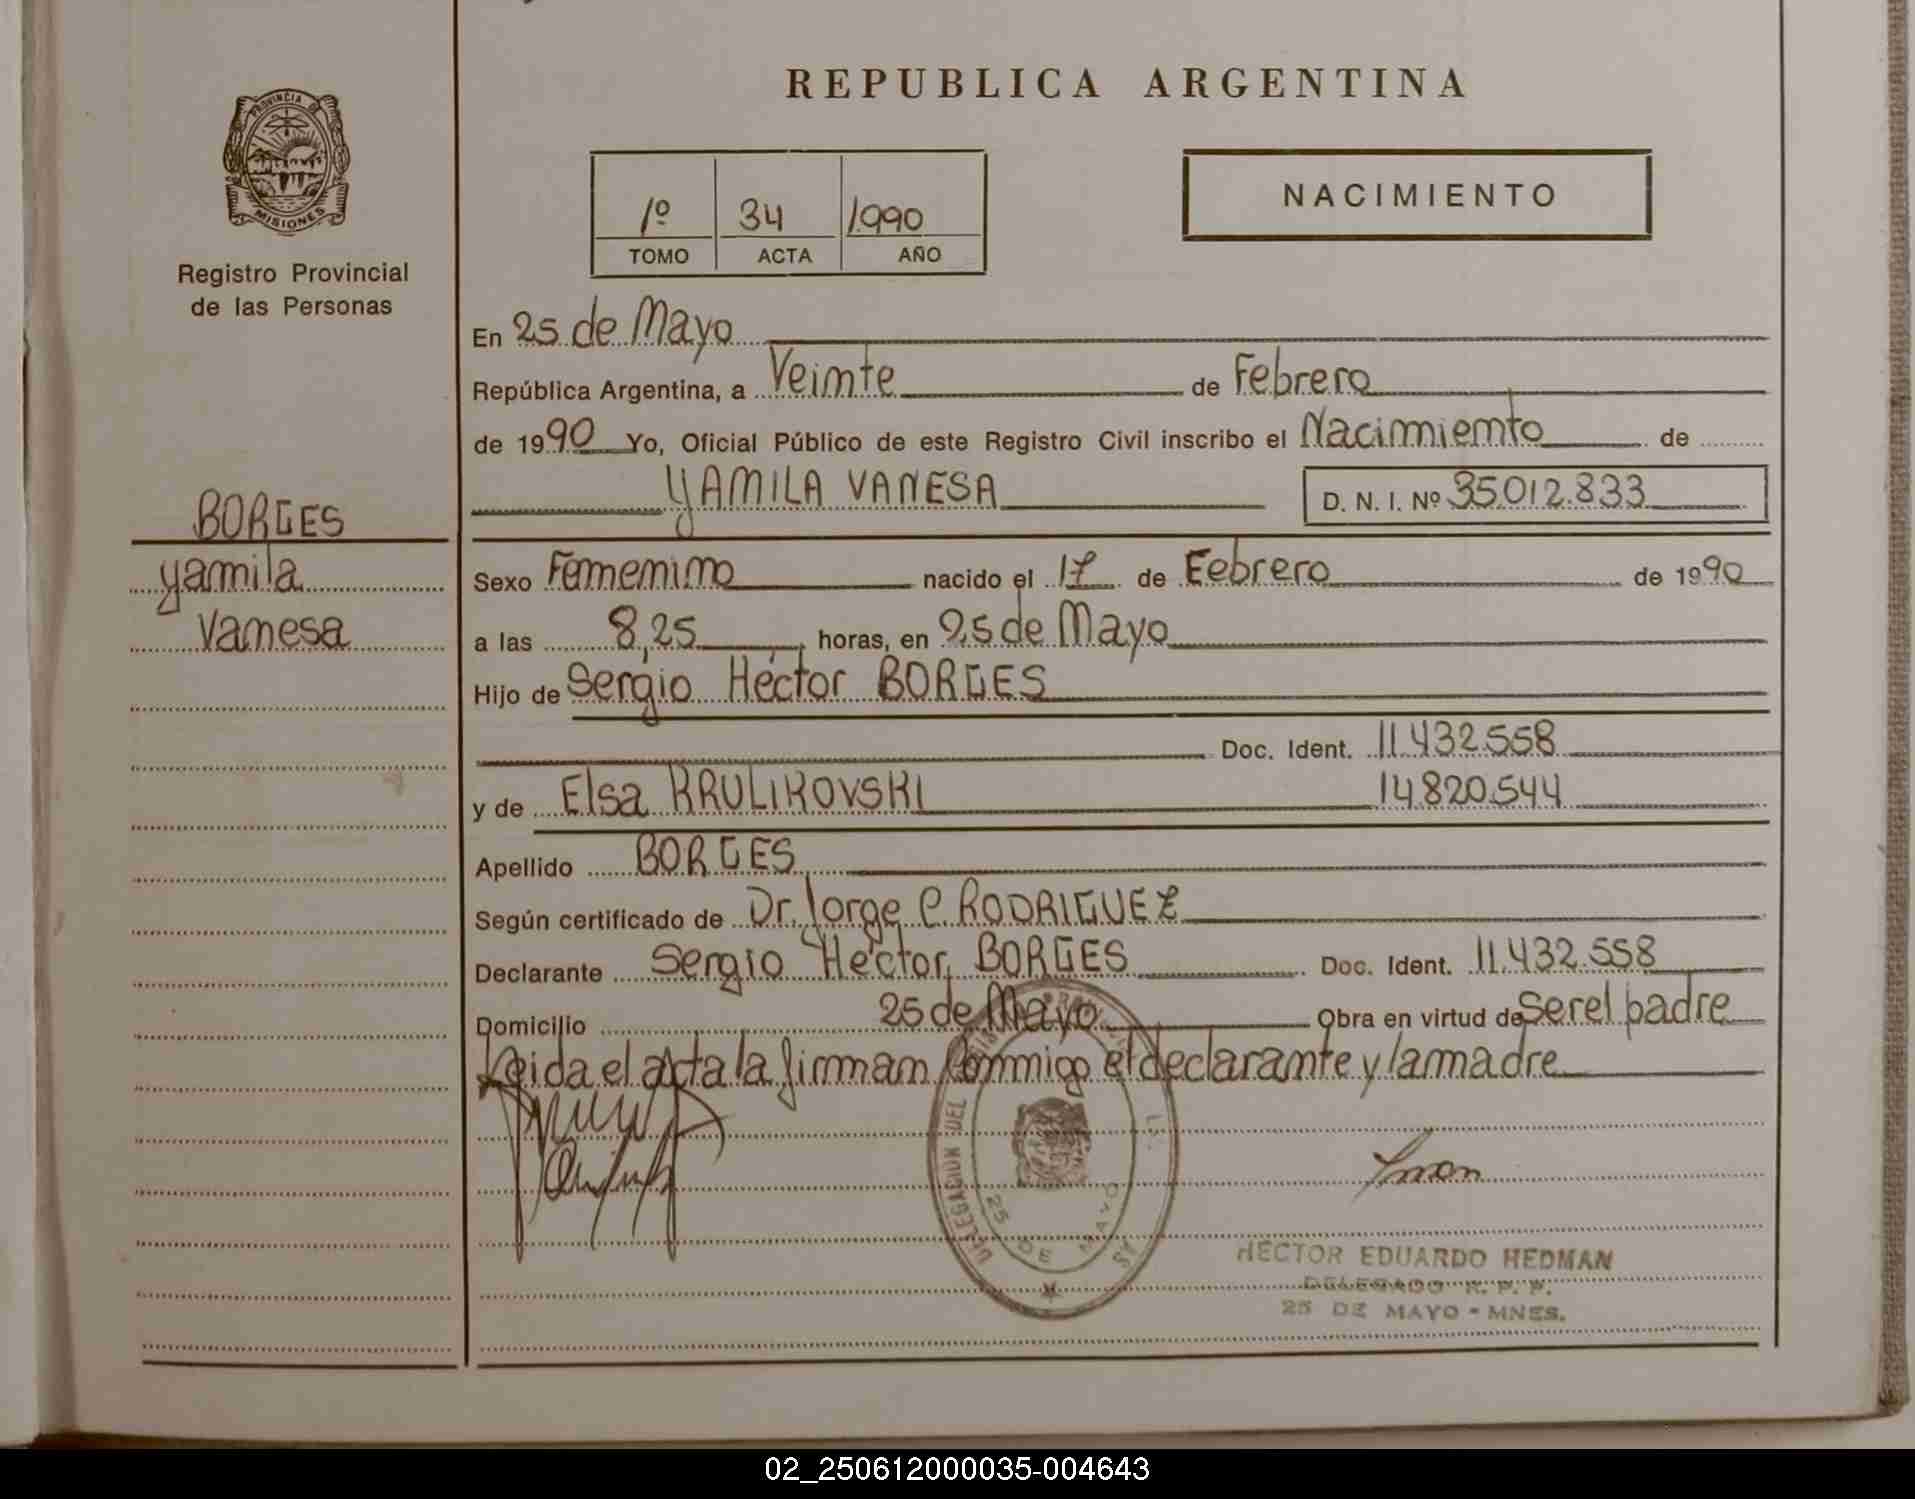 REPUBLICA ARGENTINA
PROVINCIA DE
MISIONES
Registro Provincial
de las Personas
1º 34 1.990
TOMO ACTA AÑO
NACIMIENTO
BORGES
Yamila
Vanesa
En 25 de Mayo
República Argentina, a Veinte de Febrero
de 1990 Yo, Oficial Público de este Registro Civil inscribo el Nacimiento de
YAMILA VANESA D. N. I. Nº 35.012.833
Sexo Femenino nacido el 17 de Febrero de 1990
a las 8,25 horas, en 25 de Mayo
Hijo de Sergio Héctor BORGES
Doc. Ident. 11.432.558
y de Elsa KRULIKOVSKI 14.820.544
Apellido BORGES
Según certificado de Dr. Jorge C. RODRIGUEZ
Declarante Sergio Héctor BORGES Doc. Ident. 11.432.558
Domicilio 25 de Mayo Obra en virtud de ser el padre
Leida el acta la firman conmigo el declarante y la madre
DELEGACION DEL
25 DE MAYO
HECTOR EDUARDO HEDMAN
DELEGADO R. P. P.
25 DE MAYO - MNES.
02_250612000035-004643